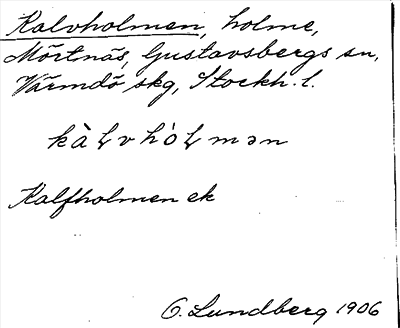 Kalvholmen, holme,
Mörtnäs, Gustavsbergs sn,
Värmdö skg, Stockh. l.
kàⱡvhòⱡmən
Kalfholmen ek
O. Lundberg 1906